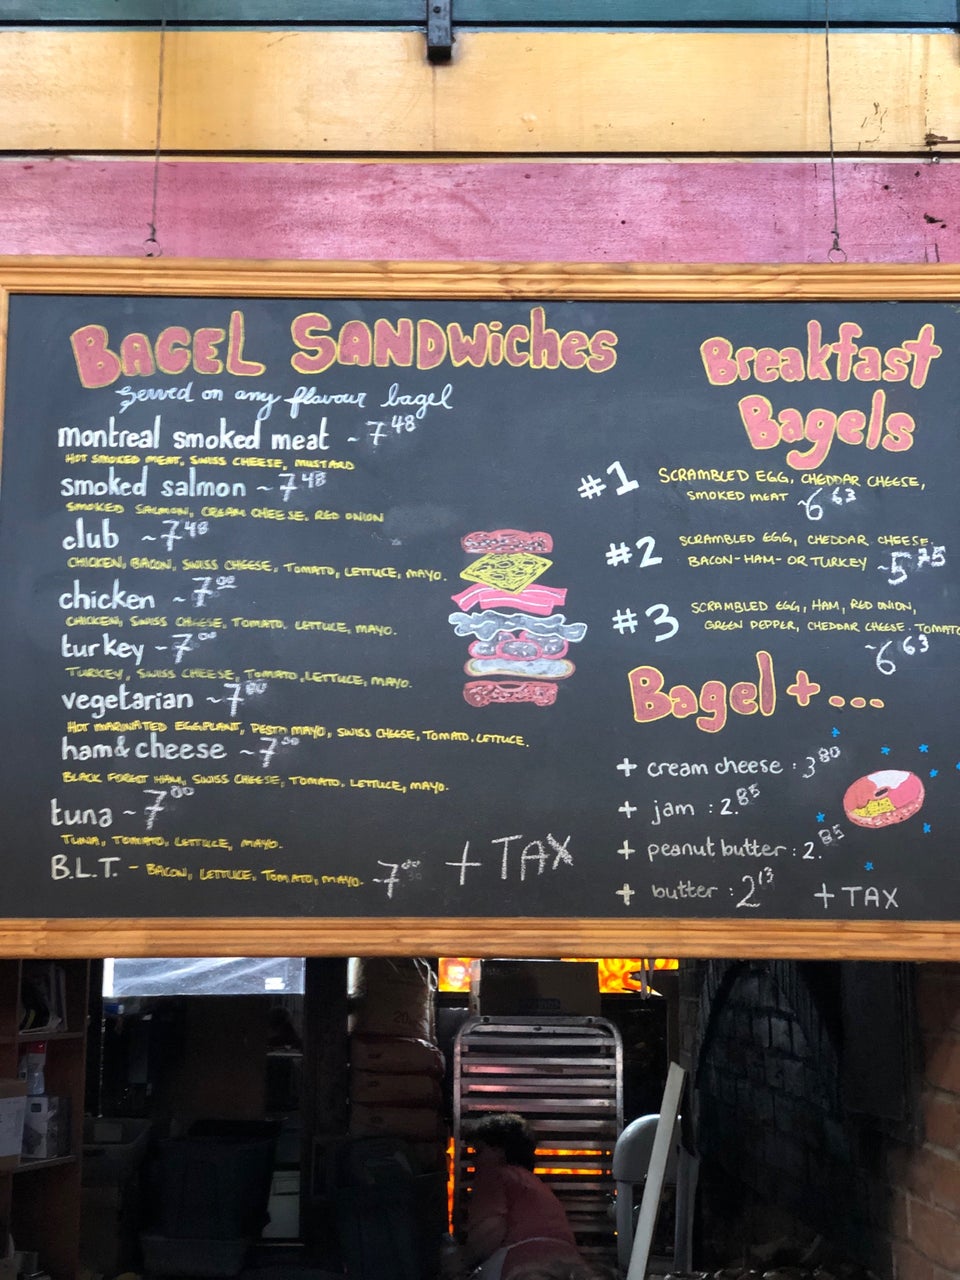 BAGEL SANDWiches
Served on any flavour bagel
montreal smoked meat ~ 7 48
HOT SMOKED MEAT, SWISS CHEESE, MUSTARD
smoked salmon ~ 7 48
SMOKED SALMON, CREAM CHEESE, RED ONION
club ~ 7 48
CHICKEN, BACON, SWISS CHEESE, TOMATO, LETTUCE, MAYO.
chicken ~ 7 00
CHICKEN, SWISS CHEESE, TOMATO, LETTUCE, MAYO.
turkey ~ 7 00
TURKEY, SWISS CHEESE, TOMATO, LETTUCE, MAYO.
vegetarian ~ 7 00
HOT MARINATED EGGPLANT, PESTO MAYO, SWISS CHEESE, TOMATO, LETTUCE.
ham & cheese ~ 7
BLACK FOREST HAM, SWISS CHEESE, TOMATO, LETTUCE, MAYO.
tuna ~ 7 00
TUNA, TOMATO, LETTUCE, MAYO.
B.L.T. - BACON, LETTUCE, TOMATO, MAYO. ~ 7
+ TAX
Breakfast
Bagels
#1 SCRAMBLED EGG, CHEDDAR CHEESE,
SMOKED MEAT ~ 6 63
#2 SCRAMBLED EGG, CHEDDAR CHEESE.
BACON-HAM-OR TURKEY ~ 5 75
#3 SCRAMBLED EGG, HAM, RED ONION,
GREEN PEPPER, CHEDDAR CHEESE. TOMATO
~ 6 63
Bagel + ...
+ cream cheese : 3 80
+ jam : 2. 85
+ peanut butter : 2. 85
+ butter : 2 13
+ TAX